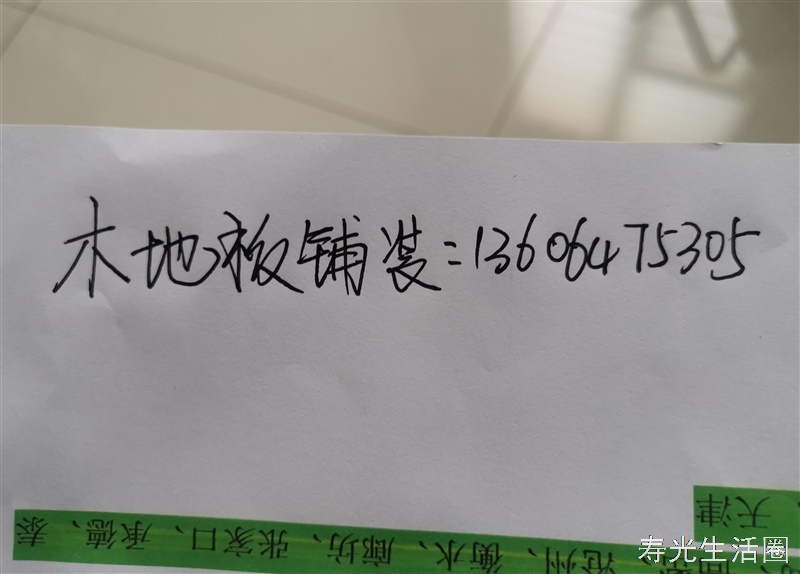 木地板铺装:13606475305
天津
沧州、衡水、廊坊、张家口、承德、秦
寿光生活圈